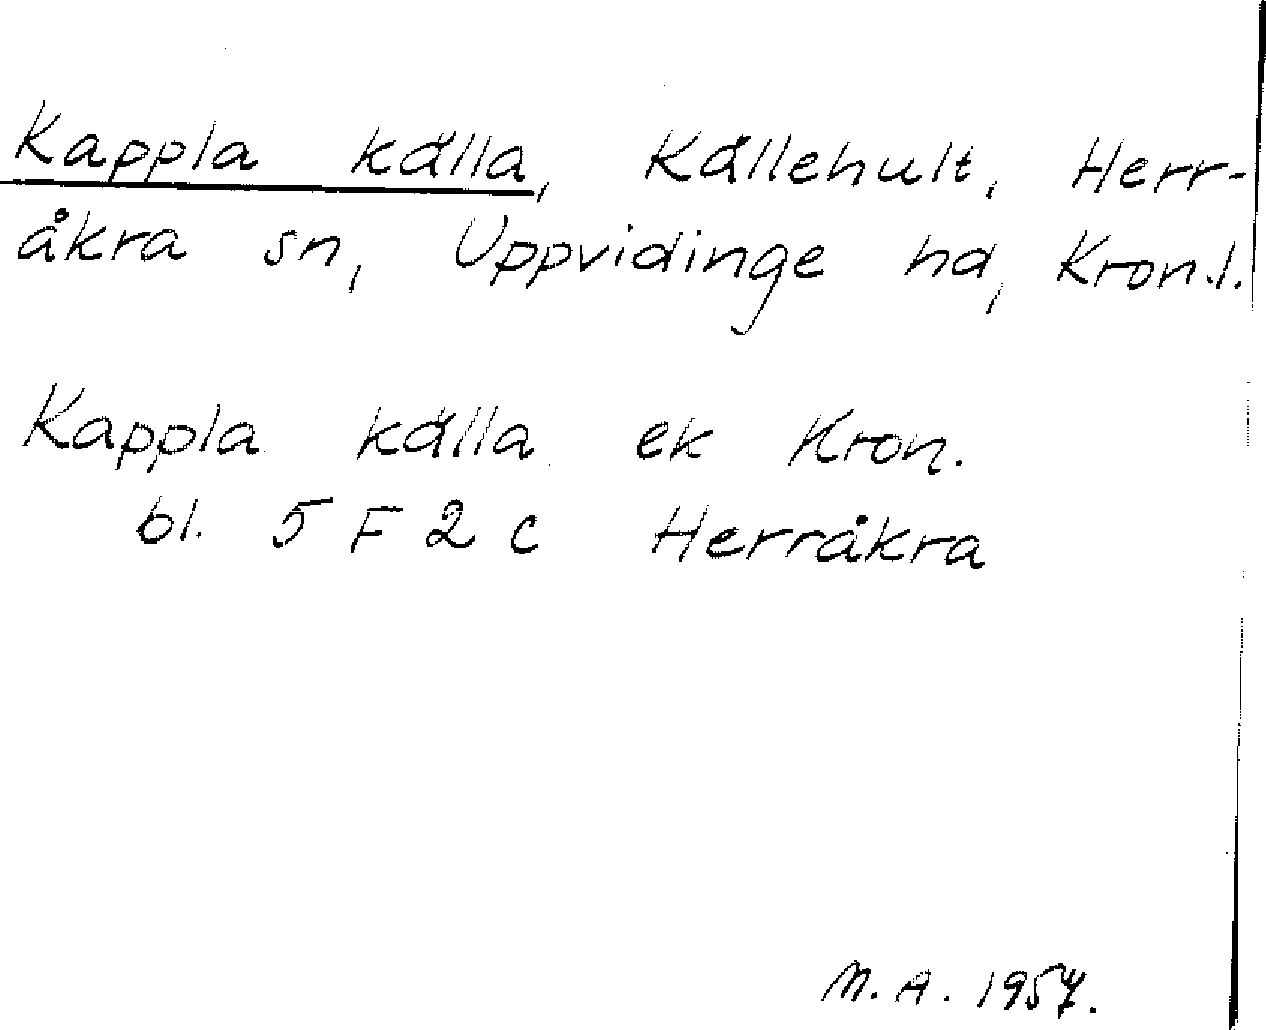 Kappla källa, Källehult, Herr-
åkra sn, Uppvidinge hd, Kron.l.
Kappla källa ek Kron.
bl. 5 F 2 c Herråkra
M. A. 1957.